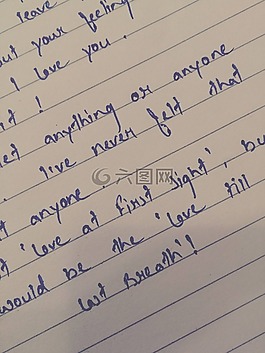 leave
but your feeling
I love you.
!
anything or anyone
I've never felt that
anyone.
'love at first sight', bu
would be the 'love till
last Breath'!
六图网